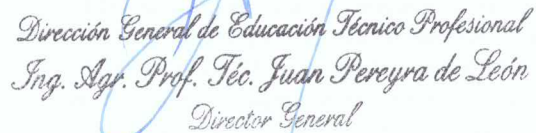 Dirección General de Educación Técnico Profesional
Ing. Agr. Prof. Téc. Juan Pereyra de León
Director General